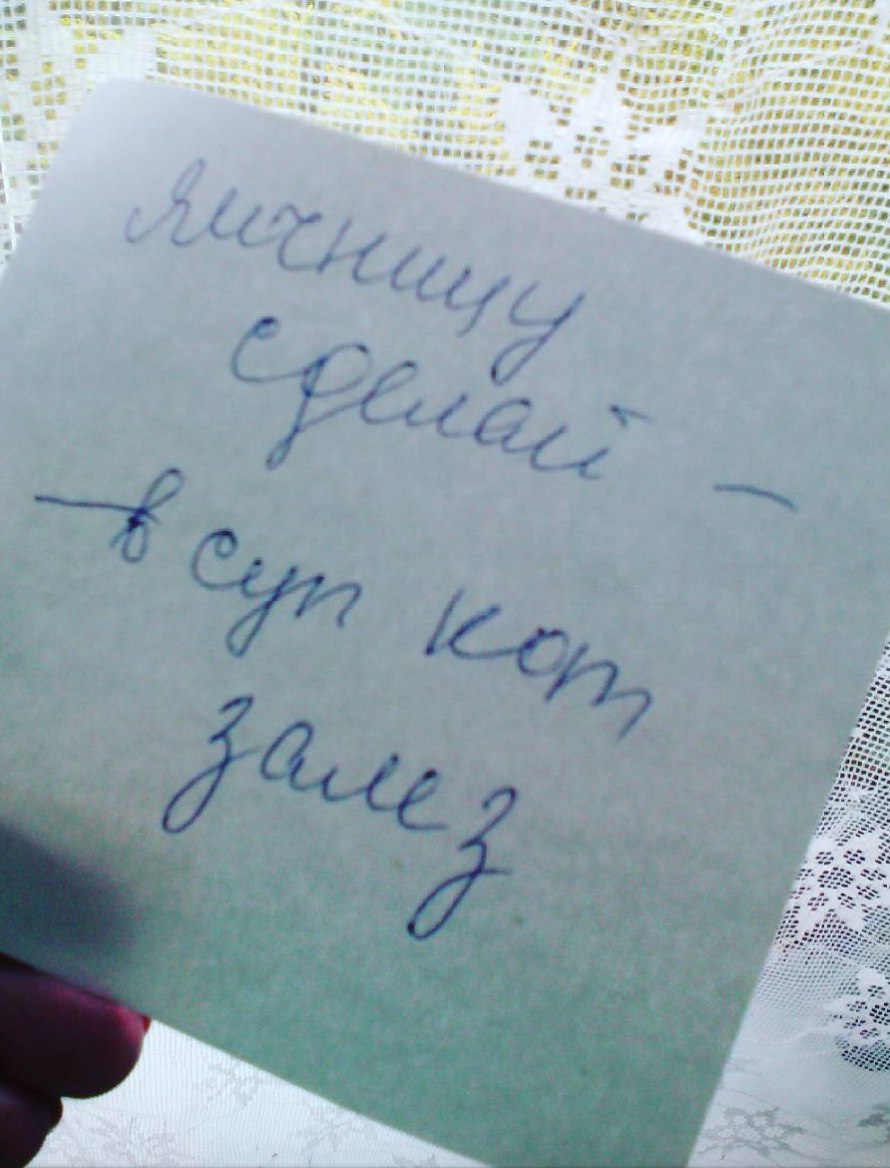 яичницу
сделай —
— в суп кот
залез